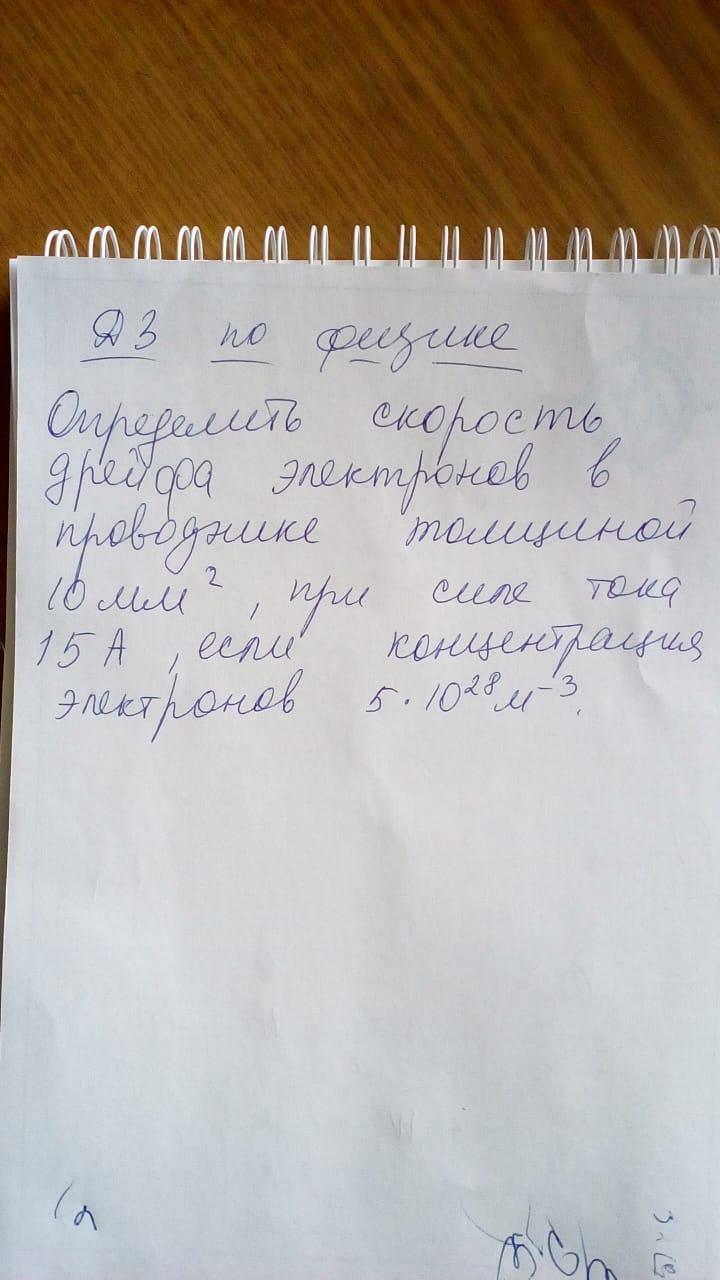 ДЗ по физике
Определить скорость
дрейфа электронов в
проводнике толщиной
10 мм², при силе тока
15 А, если концентрация
электронов 5·10²⁸ м⁻³.